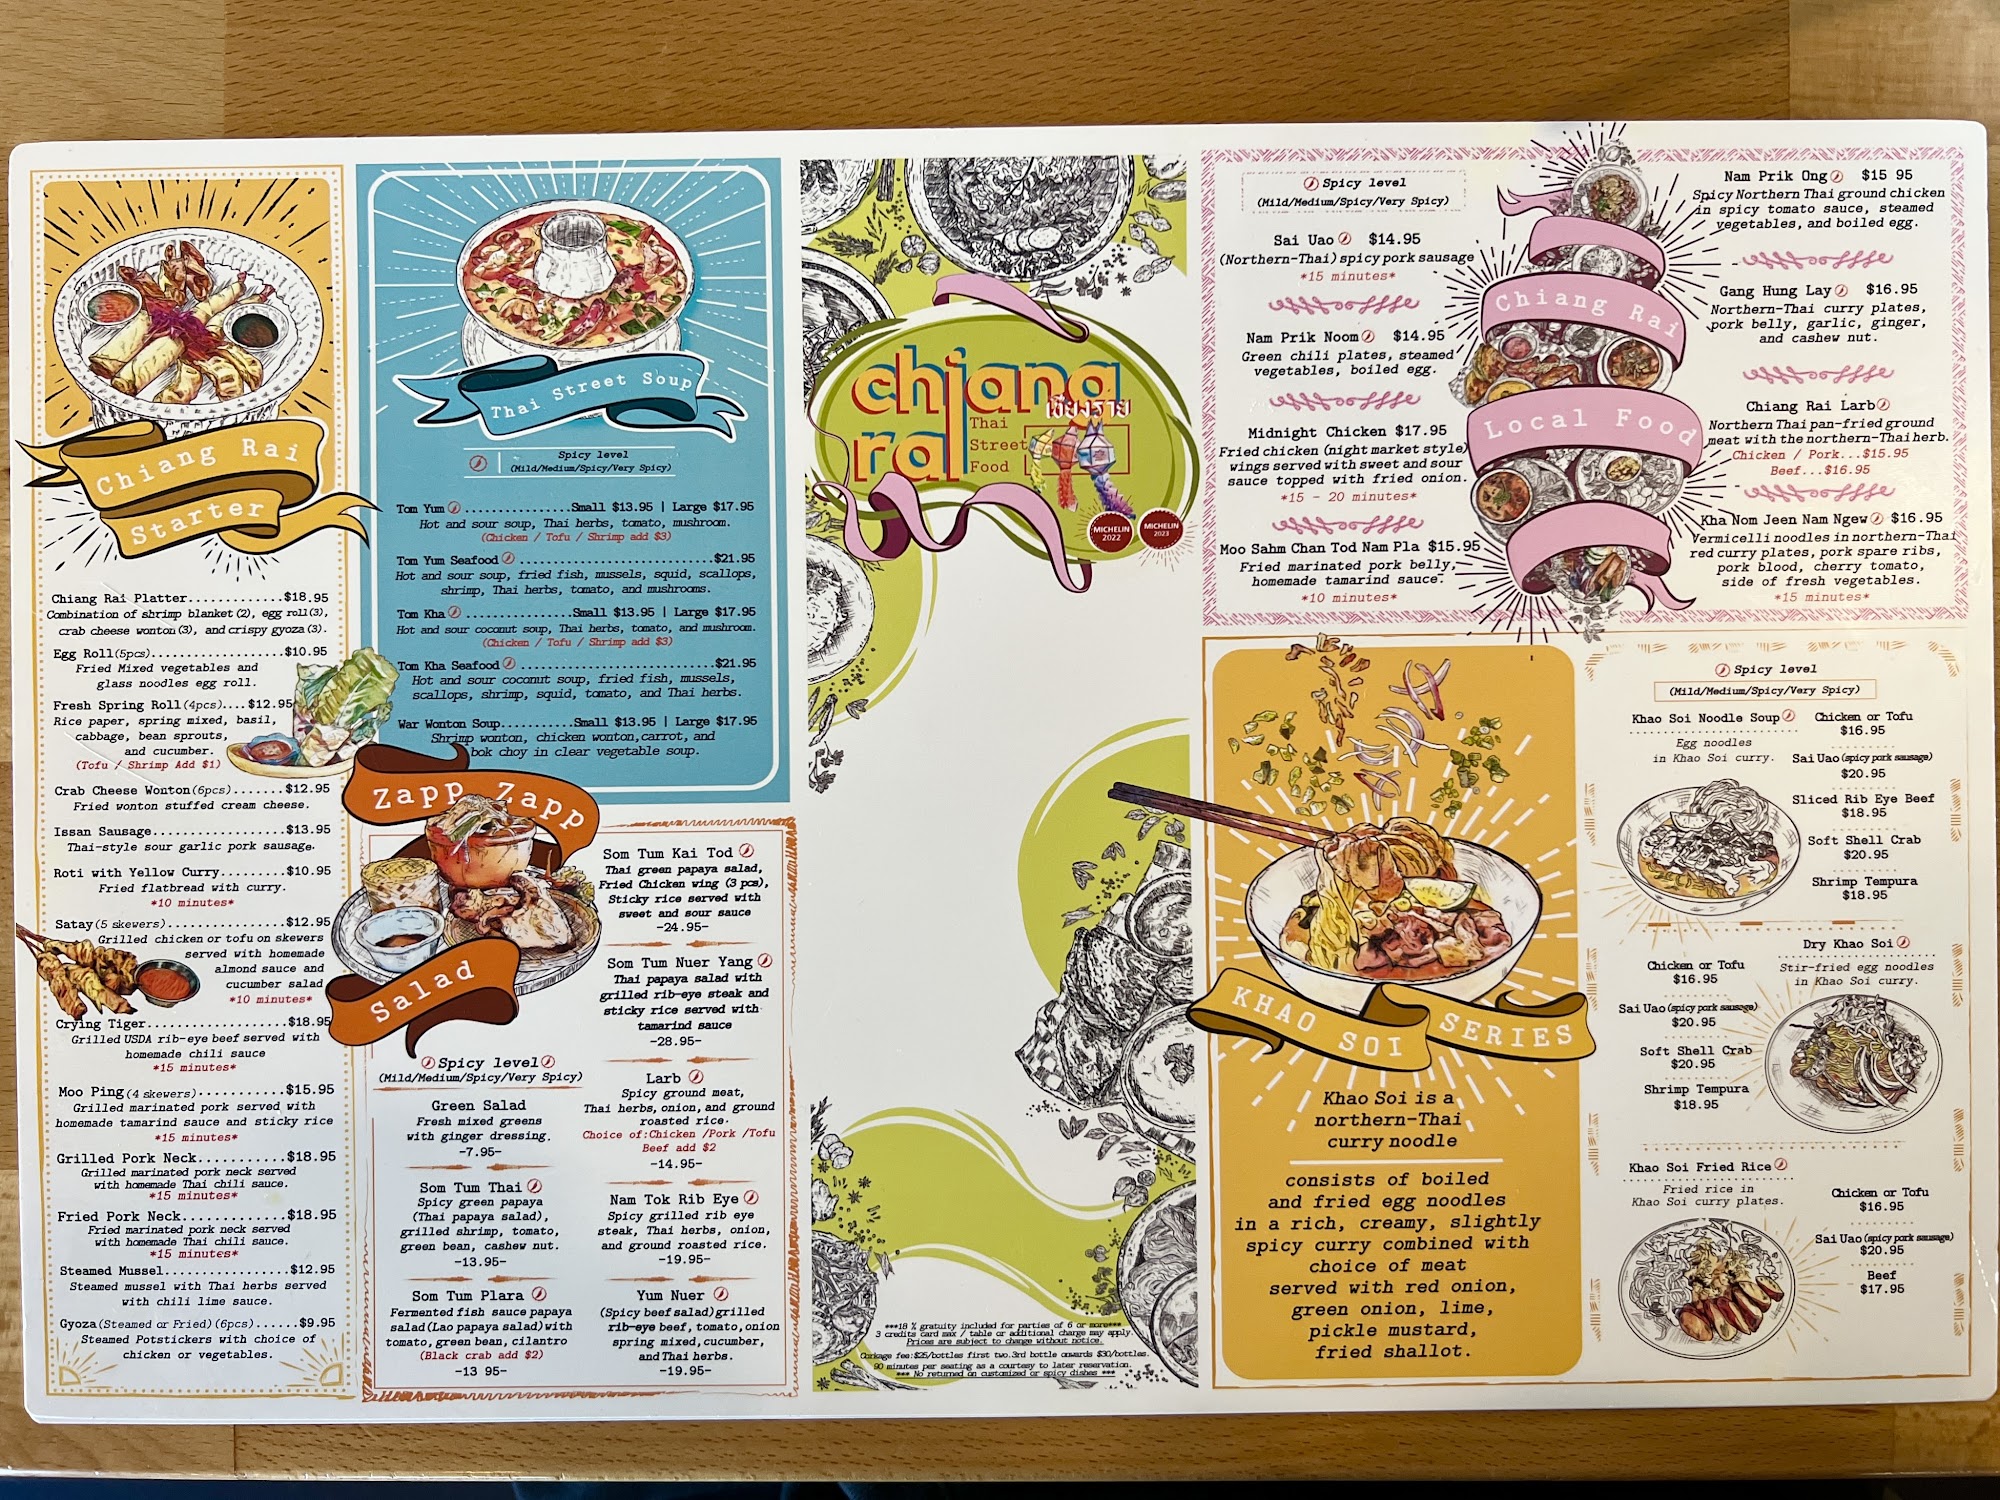 Chiang Rai
Starter
Chiang Rai Platter.............$18.95
Combination of shrimp blanket(2), egg roll(3),
crab cheese wonton(3), and crispy gyoza(3).
Egg Roll(5pcs)...................$10.95
Fried Mixed vegetables and
glass noodles egg roll.
Fresh Spring Roll(4pcs)....$12.95
Rice paper, spring mixed, basil,
cabbage, bean sprouts,
and cucumber.
(Tofu / Shrimp Add $1)
Crab Cheese Wonton(6pcs).......$12.95
Fried wonton stuffed cream cheese.
Issan Sausage.................$13.95
Thai-style sour garlic pork sausage.
Roti with Yellow Curry.........$10.95
Fried flatbread with curry.
*10 minutes*
Satay(5 skewers)................$12.95
Grilled chicken or tofu on skewers
served with homemade
almond sauce and
cucumber salad
*10 minutes*
Crying Tiger..................$18.95
Grilled USDA rib-eye beef served with
homemade chili sauce
*15 minutes*
Moo Ping(4 skewers)............$15.95
Grilled marinated pork served with
homemade tamarind sauce and sticky rice
*15 minutes*
Grilled Pork Neck............$18.95
Grilled marinated pork neck served
with homemade Thai chili sauce.
*15 minutes*
Fried Pork Neck..............$18.95
Fried marinated pork neck served
with homemade Thai chili sauce.
*15 minutes*
Steamed Mussel................$12.95
Steamed mussel with Thai herbs served
with chili lime sauce.
Gyoza(Steamed or Fried)(6pcs)......$9.95
Steamed Potstickers with choice of
chicken or vegetables.
Thai Street Soup
Spicy level
(Mild/Medium/Spicy/Very Spicy)
Tom Yum ................Small $13.95 | Large $17.95
Hot and sour soup, Thai herbs, tomato, mushroom.
(Chicken / Tofu / Shrimp add $3)
Tom Yum Seafood .............................$21.95
Hot and sour soup, fried fish, mussels, squid, scallops,
shrimp, Thai herbs, tomato, and mushrooms.
Tom Kha ................Small $13.95 | Large $17.95
Hot and sour coconut soup, Thai herbs, tomato, and mushroom.
(Chicken / Tofu / Shrimp add $3)
Tom Kha Seafood .............................$21.95
Hot and sour coconut soup, fried fish, mussels,
scallops, shrimp, squid, tomato, and Thai herbs.
War Wonton Soup...........Small $13.95 | Large $17.95
Shrimp wonton, chicken wonton,carrot, and
bok choy in clear vegetable soup.
Zapp Zapp
Salad
Spicy level
(Mild/Medium/Spicy/Very Spicy)
Green Salad
Fresh mixed greens
with ginger dressing.
-7.95-
Som Tum Thai
Spicy green papaya
(Thai papaya salad),
grilled shrimp, tomato,
green bean, cashew nut.
-13.95-
Som Tum Plara
Fermented fish sauce papaya
salad(Lao papaya salad)with
tomato, green bean, cilantro
(Black crab add $2)
-13 95-
Som Tum Kai Tod
Thai green papaya salad,
Fried Chicken wing (3 pcs),
Sticky rice served with
sweet and sour sauce
-24.95-
Som Tum Nuer Yang
Thai papaya salad with
grilled rib-eye steak and
sticky rice served with
tamarind sauce
-28.95-
Larb
Spicy ground meat,
Thai herbs, onion, and ground
roasted rice.
Choice of:Chicken /Pork /Tofu
Beef add $2
-14.95-
Nam Tok Rib Eye
Spicy grilled rib eye
steak, Thai herbs, onion,
and ground roasted rice.
-19.95-
Yum Nuer
(Spicy beef salad)grilled
rib-eye beef, tomato,onion
spring mixed,cucumber,
and Thai herbs.
-19.95-
chiang
เชียงราย
rai
Thai
Street
Food
MICHELIN
2022
MICHELIN
2023
***18 % gratuity included for parties of 6 or more***
3 credits card max / table or additional charge may apply.
Prices are subject to change without notice.
Corkage fee:$25/bottles first two.3rd bottle onwards $30/bottles.
90 minutes per seating as a courtesy to later reservation.
*** No returned on customized or spicy dishes ***
Spicy level
(Mild/Medium/Spicy/Very Spicy)
Sai Uao $14.95
(Northern-Thai)spicy pork sausage
*15 minutes*
Nam Prik Noom $14.95
Green chili plates, steamed
vegetables, boiled egg.
Midnight Chicken $17.95
Fried chicken (night market style)
wings served with sweet and sour
sauce topped with fried onion.
*15 - 20 minutes*
Moo Sahm Chan Tod Nam Pla $15.95
Fried marinated pork belly,
homemade tamarind sauce.
*10 minutes*
Chiang Rai
Local Food
Nam Prik Ong $15 95
Spicy Northern Thai ground chicken
in spicy tomato sauce, steamed
vegetables, and boiled egg.
Gang Hung Lay $16.95
Northern-Thai curry plates,
pork belly, garlic, ginger,
and cashew nut.
Chiang Rai Larb
Northern Thai pan-fried ground
meat with the northern-Thai herb.
Chicken / Pork...$15.95
Beef...$16.95
Kha Nom Jeen Nam Ngew $16.95
Vermicelli noodles in northern-Thai
red curry plates, pork spare ribs,
pork blood, cherry tomato,
side of fresh vegetables.
*15 minutes*
KHAO SOI SERIES
Khao Soi is a
northern-Thai
curry noodle
consists of boiled
and fried egg noodles
in a rich, creamy, slightly
spicy curry combined with
choice of meat
served with red onion,
green onion, lime,
pickle mustard,
fried shallot.
Spicy level
(Mild/Medium/Spicy/Very Spicy)
Khao Soi Noodle Soup
Egg noodles
in Khao Soi curry.
Chicken or Tofu
$16.95
Sai Uao(spicy pork sausage)
$20.95
Sliced Rib Eye Beef
$18.95
Soft Shell Crab
$20.95
Shrimp Tempura
$18.95
Dry Khao Soi
Stir-fried egg noodles
in Khao Soi curry.
Chicken or Tofu
$16.95
Sai Uao(spicy pork sausage)
$20.95
Soft Shell Crab
$20.95
Shrimp Tempura
$18.95
Khao Soi Fried Rice
Fried rice in
Khao Soi curry plates.
Chicken or Tofu
$16.95
Sai Uao(spicy pork sausage)
$20.95
Beef
$17.95